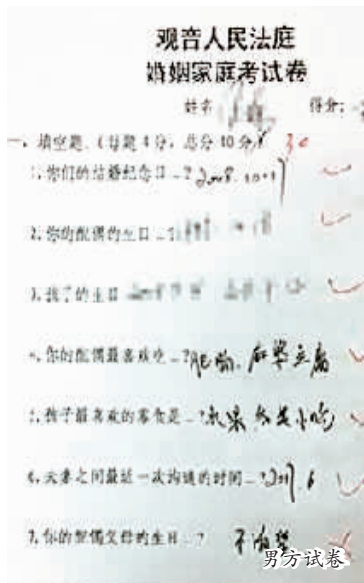 观音人民法庭
婚姻家庭考试卷
姓名 得分:
一、填空题、(每题4分,总分40分) 30
1、你们的结婚纪念日..? 2008.10.17
2、你的配偶的生日..?
3、孩子的生日
4、你的配偶最喜欢吃..? 肥肠、麻婆豆腐
5、孩子最喜欢的零食是..? 水果 小吃
6、夫妻之间最近一次沟通的时间..? 2017.6
7、你的配偶父母的生日..? 不清楚
男方试卷